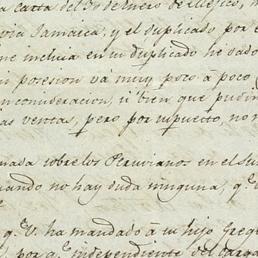 a carta del 30 de Enero de
via Jamaica, y el duplicado por e
ne incluia en su duplicado he dado
i posesion vá muy poco á poco
nconsideracion, si bien que pudie
as ventas, pero por supuesto, no
nada sobre los Peruvianos en el Su
uando no hay duda ninguna, q.e
q.e V. ha mandado á su hijo Greg
por q.e independiente del carga